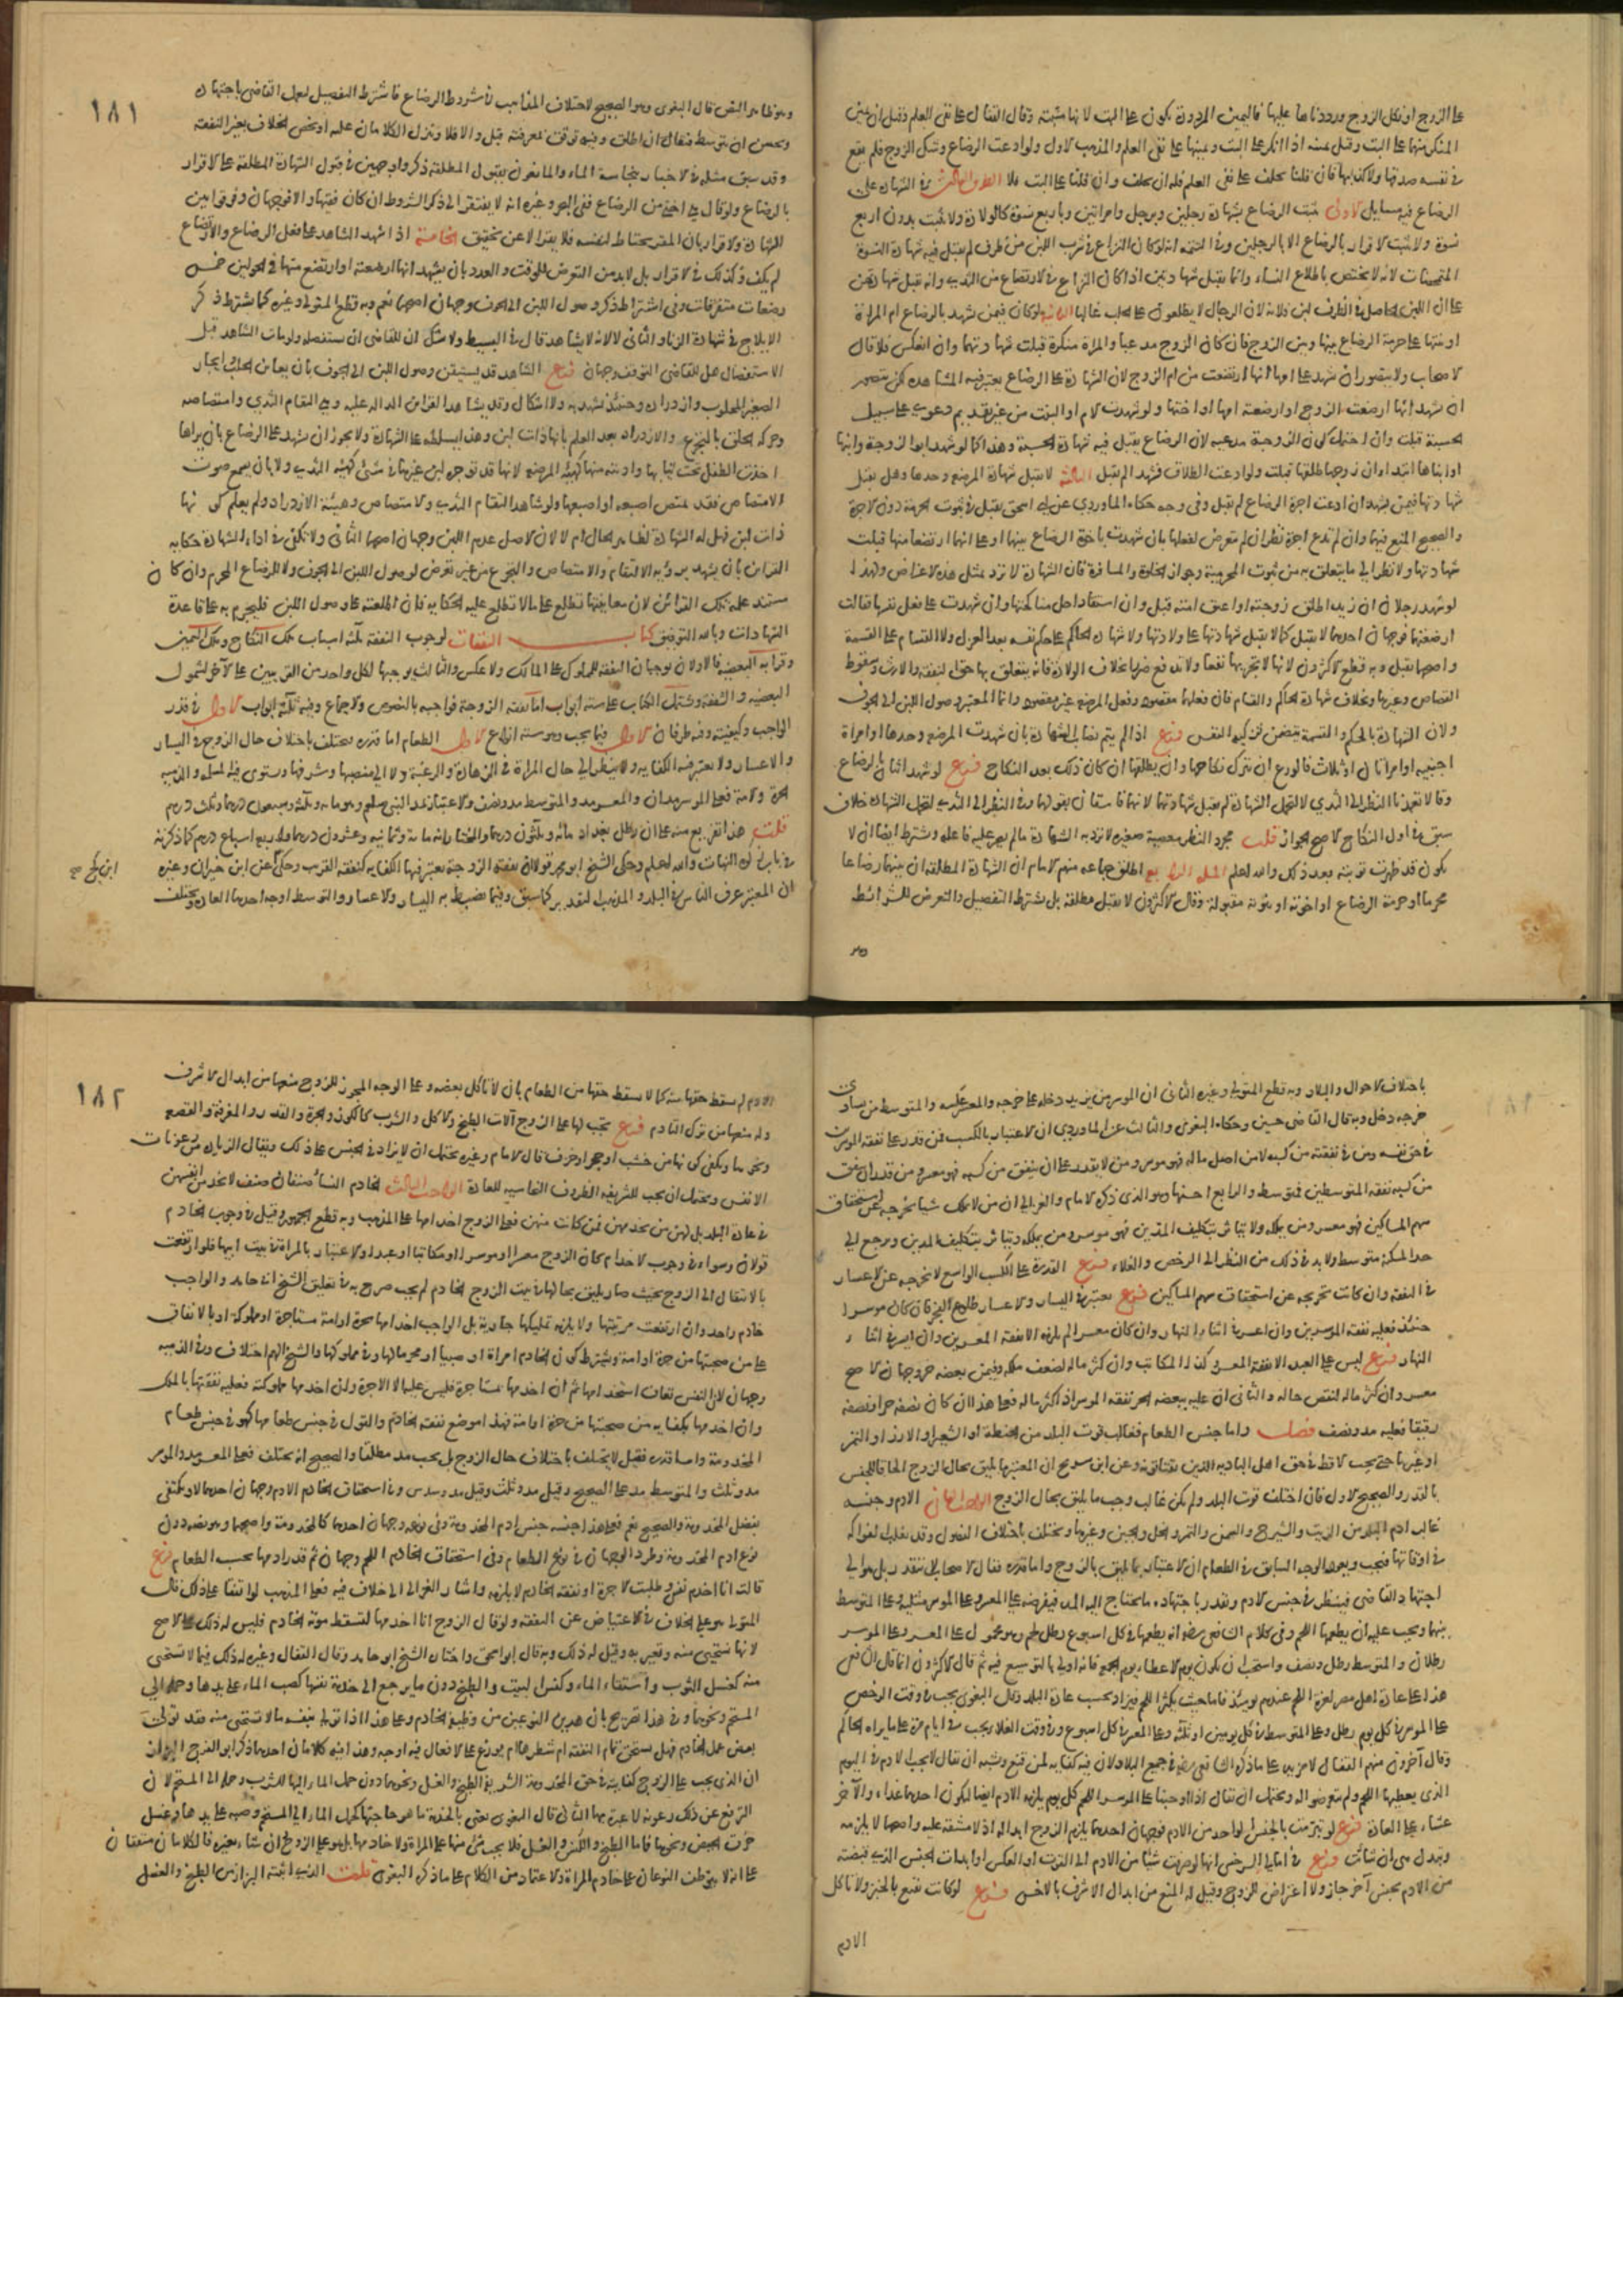 على الزوج او نكل الزوج ورددناها عليها فاليمين المردودة تكون على البت لانها مثبتة وقال القفال على نفي العلم وقيل ان يمين
المنكر منهما على البت وقيل يمينه اذا انكر على البت ويمينها على نفي العلم والمذهب الاول ولو ادعت الرضاع وشك الزوج فلم يقع
في نفسه صدقها ولا كذبها فان قلنا يحلف على نفي العلم فله ان يحلف وان قلنا على البت فلا الطرف الثالث في الشهادة على
الرضاع فيه مسايل الاولى يثبت الرضاع بشهادة رجلين وبرجل وامراتين وباربع نسوة كالولادة ولا يثبت بدون اربع
نسوة ولا يثبت الاقرار بالرضاع الا بالرجلين وفي التتمة انه لو كان النزاع في شرب اللبن من ظرف لم يقبل فيه شهادة النسوة
المتمحضات لانه لا يختص باطلاع النساء وانما يقبل شهادتهن اذا كان النزاع في الارتضاع من الثدي وانه تقبل شهادتهن
على ان اللبن الحاصل في الظرف لبن فلانة لان الرجال لا يطلعون على الحلب غالبا الثانية لو كان فيمن شهد بالرضاع ام المراة
او بنتها على حرمة الرضاع بينها وبين الزوج فان كان الزوج مدعيا والمراة منكرة قبلت شهادتهما وان انعكس فلا قال
الاصحاب ولا يتصور ان تشهد على امها انها ارتضعت من ام الزوج لان الشهادة على الرضاع يعتبر فيه المشاهدة لكن يتصور
ان تشهد انها ارضعت الزوج او ارضعته امها او اختها ولو شهدت الام او البنت من غير تقديم دعوى على سبيل
الحسبة قبلت وان احتمل كون الزوجة مدعية لان الرضاع يقبل فيه شهادة الحسبة وهذا كما لو شهد ابو الزوجة وابنها
او ابناها ابتداء ان زوجها طلقها قبلت ولو ادعت الطلاق فشهدا لم يقبل الثالثة لا يقبل شهادة المرضع وحدها وهل يقبل
شهادتها فيمن يشهد ان ادعت اجرة الرضاع لم يقبل وفي وجه حكاه الماوردي عن ابي اسحق يقبل في ثبوت الحرمة دون الاجرة
والصحيح المنع فيهما وان لم تدع اجرة نظر ان لم تتعرض لفعلها بان شهدت باخوة الرضاع بينهما او على انهما ارتضعا منها قبلت
شهادتها ولا نظر الى ما يتعلق به من ثبوت المحرمية وجواز الخلوة والمسافرة فان الشهادة لا ترد بمثل هذه الاغراض ولهذا
لو شهد رجلان ان زيدا طلق زوجته او اعتق امته قبل وان استفاد حل مناكحتها وان شهدت على فعل نفسها فقالت
ارضعتهما فوجهان احدهما لا يقبل كما لا يقبل شهادتها على ولادتها ولا شهادة الحاكم على حكم نفسه بعد العزل ولا القسام على القسمة
واصحهما يقبل وبه قطع الاكثرون لانها لا تجر بها نفعا ولا تدفع ضررا بخلاف الولادة فانه يتعلق بها حق النفقة والارث وسقوط
القصاص وغيرها وبخلاف شهادة الحاكم والقسام فان فعلهما مقصود وفعل المرضع غير مقصود وانما المعتبر وصول اللبن الى الجوف
ولان الشهادة بالحكم والقسمة يتضمن تزكية النفس فرع اذا لم يتم نصاب الشهادة بان شهدت المرضع وحدها او امراة
اجنبية او امراتان او ثلاث فالورع ان يترك نكاحها وان يطلقها ان كان ذلك بعد النكاح فرع لو شهد اثنان بالرضاع
وقالا تعمدنا النظر الى الثدي لا لتحمل الشهادة لم يقبل شهادتهما لانهما فاسقان بقولهما وفي النظر الى الثدي لتحمل الشهادة خلاف
سبق في اول النكاح الاصح الجواز قلت مجرد النظر معصية صغيرة لا ترد به الشهادة ما لم يصر عليه فاعله ويشترط ايضا ان لا
يكون قد ظهرت توبته بعد ذلك والله اعلم المسلة الرابعة اطلق جماعة منهم الامام ان الشهادة المطلقة ان بينهما رضاعا
محرما او حرمة الرضاع او اخوته او بنوته مقبولة وقال الاكثرون لا يقبل مطلقة بل يشترط التفصيل والتعرض للشرائط
وهو
١٨١
وهو ظاهر النص قال البغوي وهو الصحيح لاختلاف المذاهب في شروط الرضاع فاشترط التفصيل ليعمل القاضي باجتهاده
ويحسن ان يتوسط فيقال ان اطلق وفيه موثوق بمعرفته قبل والا فلا وينزل الكلامان عليه او يخص الخلاف بغير الفقيه
وقد سبق مثله في الاخبار بنجاسة الماء والمانعون بقبول المطلقة ذكروا وجهين في قبول الشهادة المطلقة على الاقرار
بالرضاع ولو قال هي اختي من الرضاع ففي البحر وغيره انه لا يفتقر الى ذكر الشروط ان كان فقيها والا فوجهان وفرقوا بين
الشهادة والاقرار بان المقر يحتاط لنفسه فلا يقر الا عن تحقيق الخامسة اذا شهد الشاهد على فعل الرضاع والارتضاع
لم يكف وكذلك في الاقرار بل لا بد من التعرض للوقت والعدد بان يشهد انها ارضعته او ارتضع منها في الحولين خمس
رضعات متفرقات وفي اشتراط ذكر وصول اللبن الى الجوف وجهان اصحهما نعم وبه قطع المتولي وغيره كما يشترط ذكر
الايلاج في شهادة الزنا والثاني لا لانه لا يشاهد قال في البسيط ولا شك ان للقاضي ان يستفصله ولو مات الشاهد قبل
الاستفصال هل للقاضي التوقف وجهان فرع الشاهد قد يستيقن وصول اللبن الى الجوف بان يعاين الحلب وايجار
الصغير المحلوب وازدراده وحينئذ يشهد به ولا اشكال وقد يشاهد القراين الدالة عليه وهي التقام الثدي وامتصاصه
وحركة الحلق بالتجرع والازدراد بعد العلم بانها ذات لبن وهذا يسلطه على الشهادة ولا يجوز ان يشهد على الرضاع بان يراها
اخذت الطفل تحت ثيابها وادنته منها كهيئة المرضعة لانها قد توجره لبن غيرها في شئ كهيئة الثدي ولا بان يسمع صوت
الامتصاص فقد يمتص اصبعه او اصبعها ولو شاهد التقام الثدي والامتصاص وهيئة الازدراد ولم يعلم كونها
ذات لبن فهل له الشهادة لظاهر الحال ام لا لان الاصل عدم اللبن وجهان اصحهما الثاني ولا يكفي في اداء الشهادة حكاية
القراين بان يشهد برؤية الالتقام والامتصاص والتجرع من غير تعرض لوصول اللبن الى الجوف ولا للرضاع المحرم وان كان
مستند علمه تلك القرائن لان معاينتها تطلع على ما لا تطلع عليه الحكاية فان اطلعته على وصول اللبن فليجزم به على قاعدة
الشهادات وبالله التوفيق كتاب النفقات لوجوب النفقة ثلثة اسباب ملك النكاح وملك اليمين
وقرابة البعضية فالاولان يوجبان النفقة للمملوك على المالك ولا عكس والثالث يوجبها لكل واحد من القريبين على الاخر لشمول
البعضية والشفقة ويشتمل الكتاب على ستة ابواب اما نفقة الزوجة فواجبة بالنصوص والاجماع وفيه ثلثة ابواب الاول في قدر
الواجب وكيفيته وفيه طرفان الاول فيما يجب وهو ستة انواع الاول الطعام اما قدره فيختلف باختلاف حال الزوج في اليسار
والاعسار ولا يعتبر فيه الكفاية ولا ينظر الى حال المراة في الزهادة والرغبة ولا الى منصبها وشرفها ويستوي فيه المسلمة والذمية
الحرة والامة فعلى الموسر مدان والمعسر مد والمتوسط مد ونصف والاعتبار بمد النبي صلى وهو مائة وثلثة وسبعون درهما وثلث درهم
قلت هذا تفريع منه على ان رطل بغداد مائة وثلثون درهما والمختار انه مائة وثمانية وعشرون درهما واربعة اسباع درهم كما ذكرته
في باب زكاة النبات والله اعلم وحكى الشيخ ابو محمد قولا ان نفقة الزوجة يعتبر فيها الكفاية كنفقة القريب وحكي عن ابن خيران وغيره
ان المعتبر عرف الناس في البلد والمذهب التقدير كما سبق وفيما يضبط به اليسار والاعسار والتوسط اوجه احدها العادة ويختلف
ابن كج صح
باختلاف الاحوال والبلاد وبه قطع المتولي وغيره الثاني ان الموسر من يزيد دخله على خرجه والمعسر عكسه والمتوسط من يساوى
خرجه دخله وبه قال القاضي حسين وحكاه البغوي والثالث عن الماوردي ان الاعتبار بالكسب فمن قدر على نفقة الموسرين
في حق نفسه ومن في نفقته من كسبه لا من اصل ماله فهو موسر ومن لا يقدر على ان ينفق من كسبه فهو معسر ومن قدر ان ينفق
من كسبه نفقة المتوسطين فمتوسط والرابع احسنها وهو الذي ذكره الامام والغزالي ان من لا يملك شيا يخرجه عن استحقاق
سهم المساكين فهو معسر ومن يملكه ولا يتاثر بتكليف المدين فهو موسر ومن يملكه ويتاثر بتكليف المدين ويرجع الى
حد المسكنة متوسط ولا بد في ذلك من النظر الى الرخص والغلاء فرع القدرة على الكسب الواسع لا تخرجه عن الاعسار
في النفقة وان كانت تخرجه عن استحقاق سهم المساكين فرع يعتبر في اليسار والاعسار طلوع الفجر فان كان موسرا
حينئذ فعليه نفقة الموسرين وان اعسر في اثناء النهار وان كان معسرا لم يلزمه الا نفقة المعسرين وان ايسر في اثناء
النهار فرع ليس على العبد الا نفقة المعسر وكذا المكاتب وان كثر ماله لضعف ملكه وفيمن بعضه حر وجهان الاصح
معسر وان كثر ماله لنقص حاله والثاني ان عليه ببعضه الحر نفقة الموسر اذا كثر ماله فعلى هذا ان كان نصفه حرا ونصفه
رقيقا فعليه مد ونصف فصل واما جنس الطعام فغالب قوت البلد من الحنطة او الشعير او الارز او التمر
او غيرها حتى يجب الاقط في حق اهل البادية الذين يقتاتونه وعن ابن سريج ان المعتبر ما يليق بحال الزوج الحاقا للجنس
بالقدر والصحيح الاول فان اختلف قوت البلد ولم يكن غالب وجب ما يليق بحال الزوج الواجب الثاني الادم وجنسه
غالب ادم البلد من الزيت والشيرج والسمن والتمر والخل والجبن وغيرها ويختلف باختلاف الفصول وقد تغلب الفواكه
في اوقاتها فتجب ويعود الوجه السابق في الطعام ان الاعتبار بما يليق بالزوج واما قدره فقال الاصحاب لا يتقدر بل هو الى
اجتهاد القاضي فينظر في جنس الادم ويقدر باجتهاده ما يحتاج اليه المد فيفرضه على المعسر وعلى الموسر مثليه وعلى المتوسط
بينهما ويجب عليه ان يطعمها اللحم وفي كلام الشافعي رضه انه يطعمها في كل اسبوع رطل لحم وهو محمول على المعسر وعلى الموسر
رطلان والمتوسط رطل ونصف واستحب ان يكون يوم الاعطاء يوم الجمعة فانه اولى بالتوسيع فيه ثم قال الاكثرون انما قال الشافعي
هذا على عادة اهل مصر لعزة اللحم عندهم يومئذ فاما حيث يكثر اللحم فيزاد بحسب عادة البلد وقال البغوي يجب في وقت الرخص
على الموسر في كل يوم رطل وعلى المتوسط في كل يومين او ثلثة وعلى المعسر في كل اسبوع وفي وقت الغلاء يجب في ايام مرة على ما يراه الحاكم
وقال آخرون منهم القفال لا مزيد على ما ذكره الشافعي رضه في جميع البلاد لان فيه كفاية لمن قنع ويشبه ان يقال لا يجب الادم في اليوم
الذي يعطيها اللحم ولم يتعرضوا له ويحتمل ان يقال اذا اوجبنا على الموسر اللحم كل يوم يلزمه الادم ايضا ليكون احدهما غداء والآخر
عشاء على العادة فرع لو تبرمت بالجنس الواحد من الادم فوجهان احدهما يلزم الزوج ابداله اذ لا مشقة عليه واصحهما لا يلزمه
وتبدل هي ان شاءت فرع في امالي السرخسي انها لو صرفت شيا من الادم الى القوت او بالعكس او ابدلت الجنس الذي قبضته
من الادم بجنس آخر جاز ولا اعتراض للزوج وقيل له المنع من ابدال الاشرف بالاخس فرع لو كانت تقنع بالخبز ولا تاكل
الادم
١٨٢
الادم لم يسقط حقها منه كما لا يسقط حقها من الطعام بان لا تاكل بعضه وعلى الوجه المجوز للزوج منعها من ابدال الاشرف
وله منعها من ترك التادم فرع يجب لها على الزوج آلات الطبخ والاكل والشرب كالكوز والجرة والقدر والمغرفة والقصعة
ونحوها ويكفي كونها من خشب او حجر او خزف قال الامام وغيره يحتمل ان لا يزاد في الجنس على ذلك ويقال الزيادة من رعونات
الانفس ويحتمل ان يجب للشريفة الظروف النحاسية للعادة الواجب الثالث الخادم النساء صنفان صنف لا يخدمن انفسهن
في عادة البلد بل لهن من يخدمهن فمن كانت منهن فعلى الزوج اخدامها على المذهب وبه قطع الجمهور وقيل في وجوب الخادم
قولان وسواء في وجوب الاخدام كان الزوج معسرا او موسرا او مكاتبا او عبدا والاعتبار بالمراة في بيت ابيها فلو ارتفعت
بالانتقال الى الزوج بحيث صار يليق بحالها في بيت الزوج الخادم لم يجب صرح به في تعليق الشيخ ابي حامد والواجب
خادم واحد وان ارتفعت مرتبتها ولا يلزمه تمليكها جارية بل الواجب اخدامها بحرة او امة مستاجرة او مملوكة او بالانفاق
على من صحبتها من حرة او امة ويشترط كون الخادم امراة او صبيا او محرما لها وفي مملوكها والشيخ الهم اختلاف وفي الذمية
وجهان لان النفس تعاف استخدامها ثم ان اخدمها بمستاجرة فليس عليه الا الاجرة وان اخدمها مملوكته فعليه نفقتها بالملك
وان اخدمها بكفاية من صحبتها من حرة او امة فهذا موضع نفقة الخادم والقول في جنس طعامها كهو في جنس طعام
المخدومة واما قدره فقيل لا يختلف باختلاف حال الزوج بل يجب مد مطلقا والصحيح انه يختلف فعلى المعسر مد والموسر
مد وثلث والمتوسط مد على الصحيح وقيل مد وثلث وقيل مد وسدس وفي استحقاق الخادم الادم وجهان احدهما لا ويكتفي
بفضل المخدومة والصحيح نعم فعلى هذا جنسه جنس ادم المخدومة وفي نوعه وجهان احدهما كالمخدومة واصحهما وهو نصه دون
نوع ادم المخدومة وطرد الوجهان في نوع الطعام وفي استحقاق الخادم اللحم وجهان ثم قدر ادمها بحسب الطعام فرع
قالت انا اخدم نفسي وطلبت الاجرة او نفقة الخادم لا يلزمه واشار الغزالي الى خلاف فيه فعلى المذهب لو اتفقا على ذلك قال
المتولي هو على الخلاف في الاعتياض عن النفقة ولو قال الزوج انا اخدمها لتسقط مونة الخادم فليس له ذلك على الاصح
لانها تستحيي منه وتعير به وقيل له ذلك وبه قال ابو اسحق واختاره الشيخ ابو حامد وقال القفال وغيره له ذلك فيما لا تستحيي
منه كغسل الثوب واستقاء الماء وكنس البيت والطبخ دون ما يرجع الى خدمة نفسها كصب الماء على يدها وحمله الى
المستحم ونحوها وفي هذا تصريح بان هذين النوعين من وظيفة الخادم وعلى هذا اذا تولى بنفسه ما لا تستحيي منه فقد تولى
بعض عمل الخادم فهل يستحق تمام النفقة ام شطرها ام يوزع على الافعال فيه اوجه وهذا فيه كلامان احدهما ذكر ابو الفرج الزاز
ان الذي يجب على الزوج كفايته في حق المخدومة الشريفة الطبخ والغسل ونحوهما دون حمل الماء اليها للشرب وحمله الى المستحم لان
الترفع عن ذلك رعونة لا عبرة بها الثاني قال البغوي يعني بالخدمة ما هو حاجتها كحمل الماء الى المستحم وصبه على يدها وغسل
خرق الحيض ونحوها فاما الطبخ والكنس والغسل فلا يجب شئ منها على المراة ولا خادمها بل هو على الزوج ان شاء بغيره فالكلامان متفقان
على انه لا يتوظف النوعان على خادم المراة والاعتماد من الكلام على ما ذكره البغوي قلت الذي اثبته الزاز من الطبخ والغسل